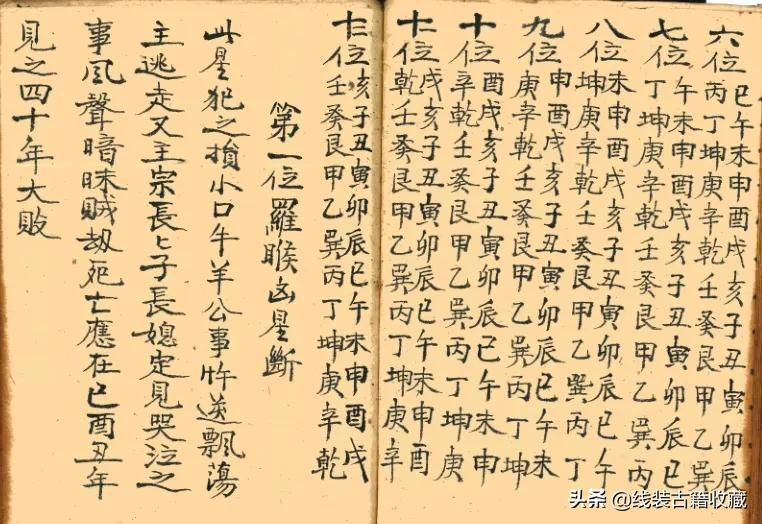 六位
巳午未申酉戌亥子丑寅卯辰
丙丁坤庚辛乾壬癸艮甲乙巽
七位
午未申酉戌亥子丑寅卯辰巳
丁坤庚辛乾壬癸艮甲乙巽丙
八位
未申酉戌亥子丑寅卯辰巳午
坤庚辛乾壬癸艮甲乙巽丙丁
九位
申酉戌亥子丑寅卯辰巳午未
庚辛乾壬癸艮甲乙巽丙丁坤
十位
酉戌亥子丑寅卯辰巳午未申
辛乾壬癸艮甲乙巽丙丁坤庚
十一位
戌亥子丑寅卯辰巳午未申酉
乾壬癸艮甲乙巽丙丁坤庚辛
十二位
亥子丑寅卯辰巳午未申酉戌
壬癸艮甲乙巽丙丁坤庚辛乾
第一位羅睺凶星斷
此星犯之損小口牛羊公事忤逆飄蕩
主逃走又主宗長々子長媳定見哭泣之
事風聲暗昧賊劫死亡應在巳酉丑年
見之四十年大敗
头条 @线装古籍收藏